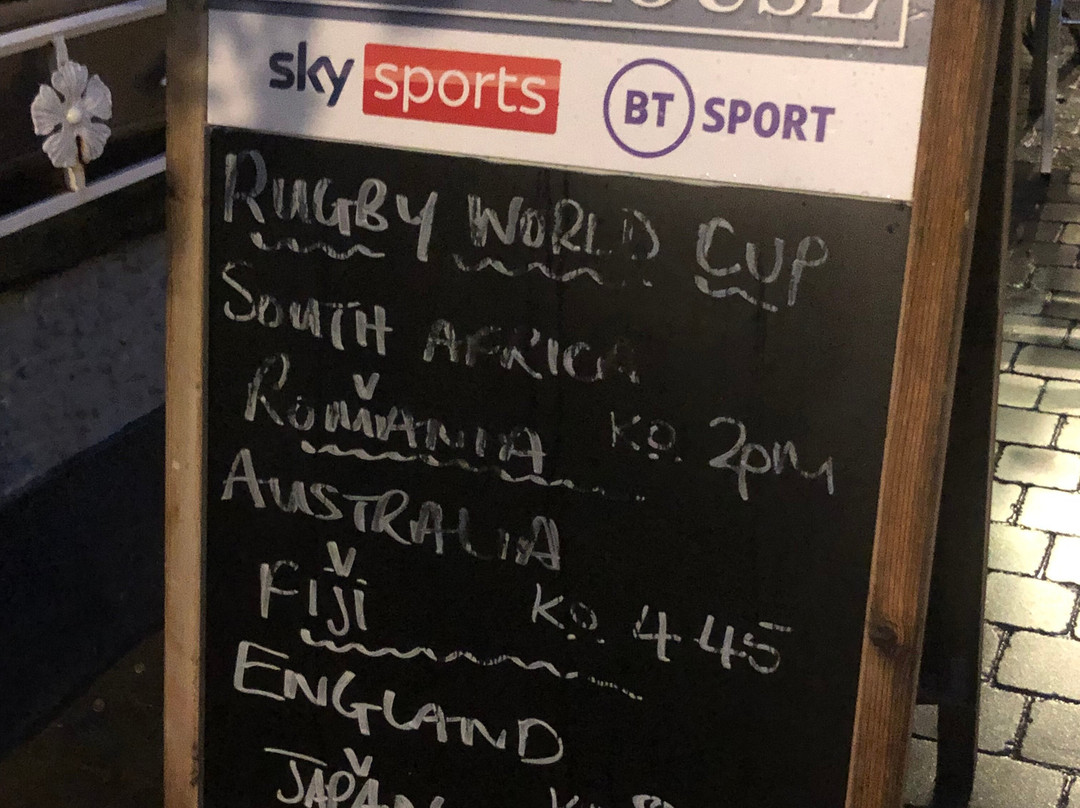 HOUSE
sky sports BT SPORT
RUGBY WORLD CUP
SOUTH AFRICA
V
ROMANIA K.O. 2pm
AUSTRALIA
V
FIJI K.O. 4 45
ENGLAND
V
JAPAN